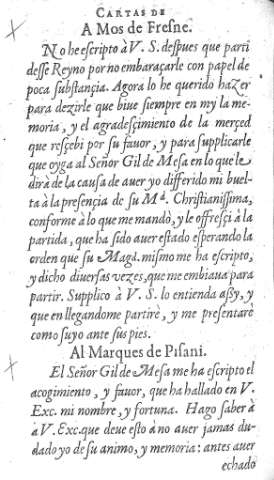 CARTAS DE
A Mos de Fresne.
No he escripto à V. S. despues que parti
desse Reyno por no embaraçarle con papel de
poca substançia. Agora lo he querido hazer
para dezirle que biue siempre en my la me-
moria, y el agradesçimiento de la merçed
que resçebi por su fauor, y para supplicarle
que oyga al Señor Gil de Mesa en lo que le
dirà de la causa de auer yo differido mi buel-
ta à la presençia de su Md. Christianissima,
conforme à lo que me mandò, y le offresçi à la
partida, que ha sido auer estado esperando la
orden que su Magd. mismo me ha escripto,
y dicho diuersas vezes, que me embiaua para
partir. Supplico à V. S. lo entienda assy, y
que en llegandome partirè, y me presentarè
como suyo ante sus pies.
Al Marques de Pisani.
El Señor Gil de Mesa me ha escripto el
acogimiento, y fauor, que ha hallado en V.
Exc. mi nombre, y fortuna. Hago saber à
à V. Exc. que deue esto à no auer jamas du-
dado yo de su animo, y memoria: antes auer
echado